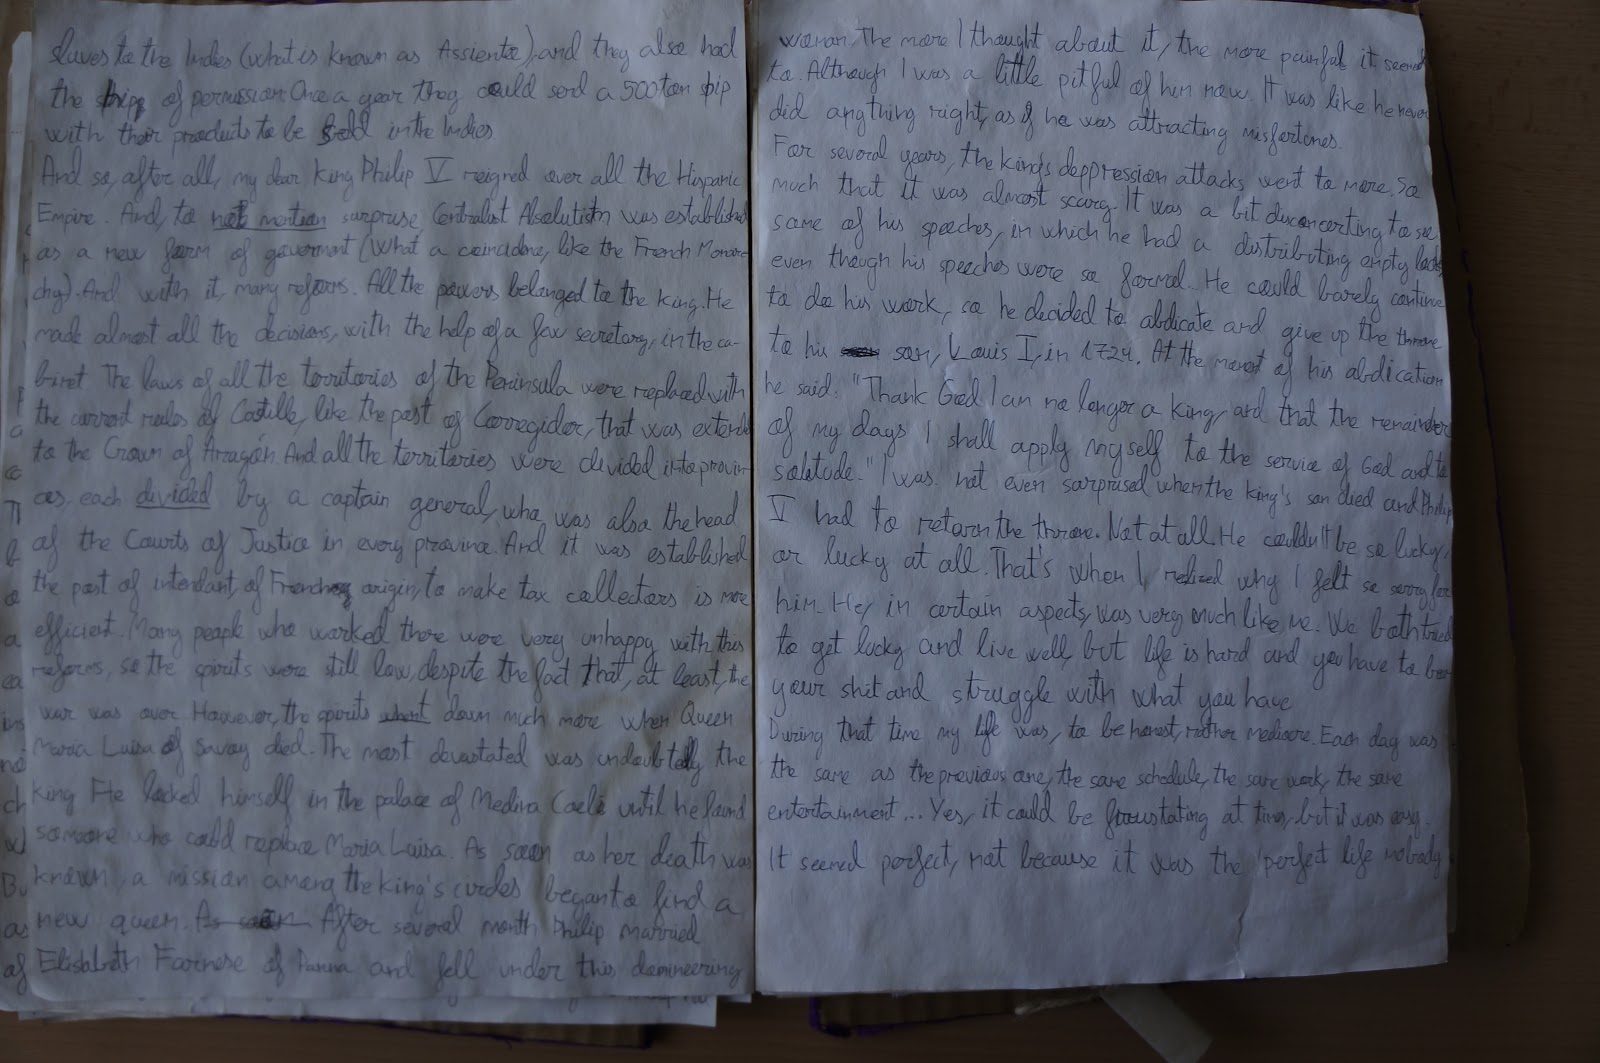 slaves to the Indies (what is known as Assiento), and they also had
the ship of permission. Once a year they could send a 500 ton ship
with their products to be sold in the Indies
And so, after all, my dear King Philip V reigned over all the Hispanic
Empire. And, to not mention surprise, Centralist Absolutism was established
as a new form of goverment (What a coincidence, like the French Monar-
chy). And with it, many reforms. All the powers belonged to the king. He
made almost all the decisions, with the help of a few secretary, in the ca-
binet. The laws of all the territories of the Peninsula were replaced with
the current rules of Castille, like the post of Corregidor, that was extend
to the Crown of Arragón. And all the territories were divided into provin
ces, each divided by a captain general, who was also the head
of the Courts of Justice in every province. And it was established
the post of intendant, of French origin, to make tax collectors is more
efficient. Many people who worked there were very unhappy with this
reforms, so the spirits were still low, despite the fact that, at least, the
war was over. However, the spirits went down much more when Queen
Maria Luisa of Savoy died. The most devastated was undoubtedly the
king. He locked himself in the palace of Medina Caeli until he found
someone who could replace Maria Luisa. As soon as her death was
known, a mission among the king's circles began to find a
new queen. As soon After several month Philip married
Elisabeth Farnese of Parma and fell under this domineering
woman. The more I thought about it, the more painful it seemed
to. Although I was a little pitful of him now. It was like he never
did anything right, as if he was attracting misfortunes.
For several years, the king's deppression attacks went to more. So
much that it was almost scary. It was a bit disconcerting to see
some of his speeches, in which he had a distributing empty look
even though his speeches were so formal. He could barely continue
to do his work, so he decided to abdicate and give up the throne
to his son, Louis I, in 1724. At the moment of his abdication
he said: "Thank God I am no longer a king, and that the remainder
of my days I shall apply myself to the service of God and to
solitude." I was not even surprised when the king's son died and Philip
V had to return the throne. Not at all. He couldn't be so lucky,
or lucky at all. That's when I realized why I felt so sorry for
him. He, in certain aspects, was very much like me. We both tried
to get lucky and live well, but life is hard and you have to
your shit and struggle with what you have
During that time my life was, to be honest, rather mediocre. Each day was
the same as the previous one, the same schedule, the same work, the same
entertainment... Yes, it could be frustating at times, but it was easy.
It seemed perfect, not because it was the 'perfect life nobody